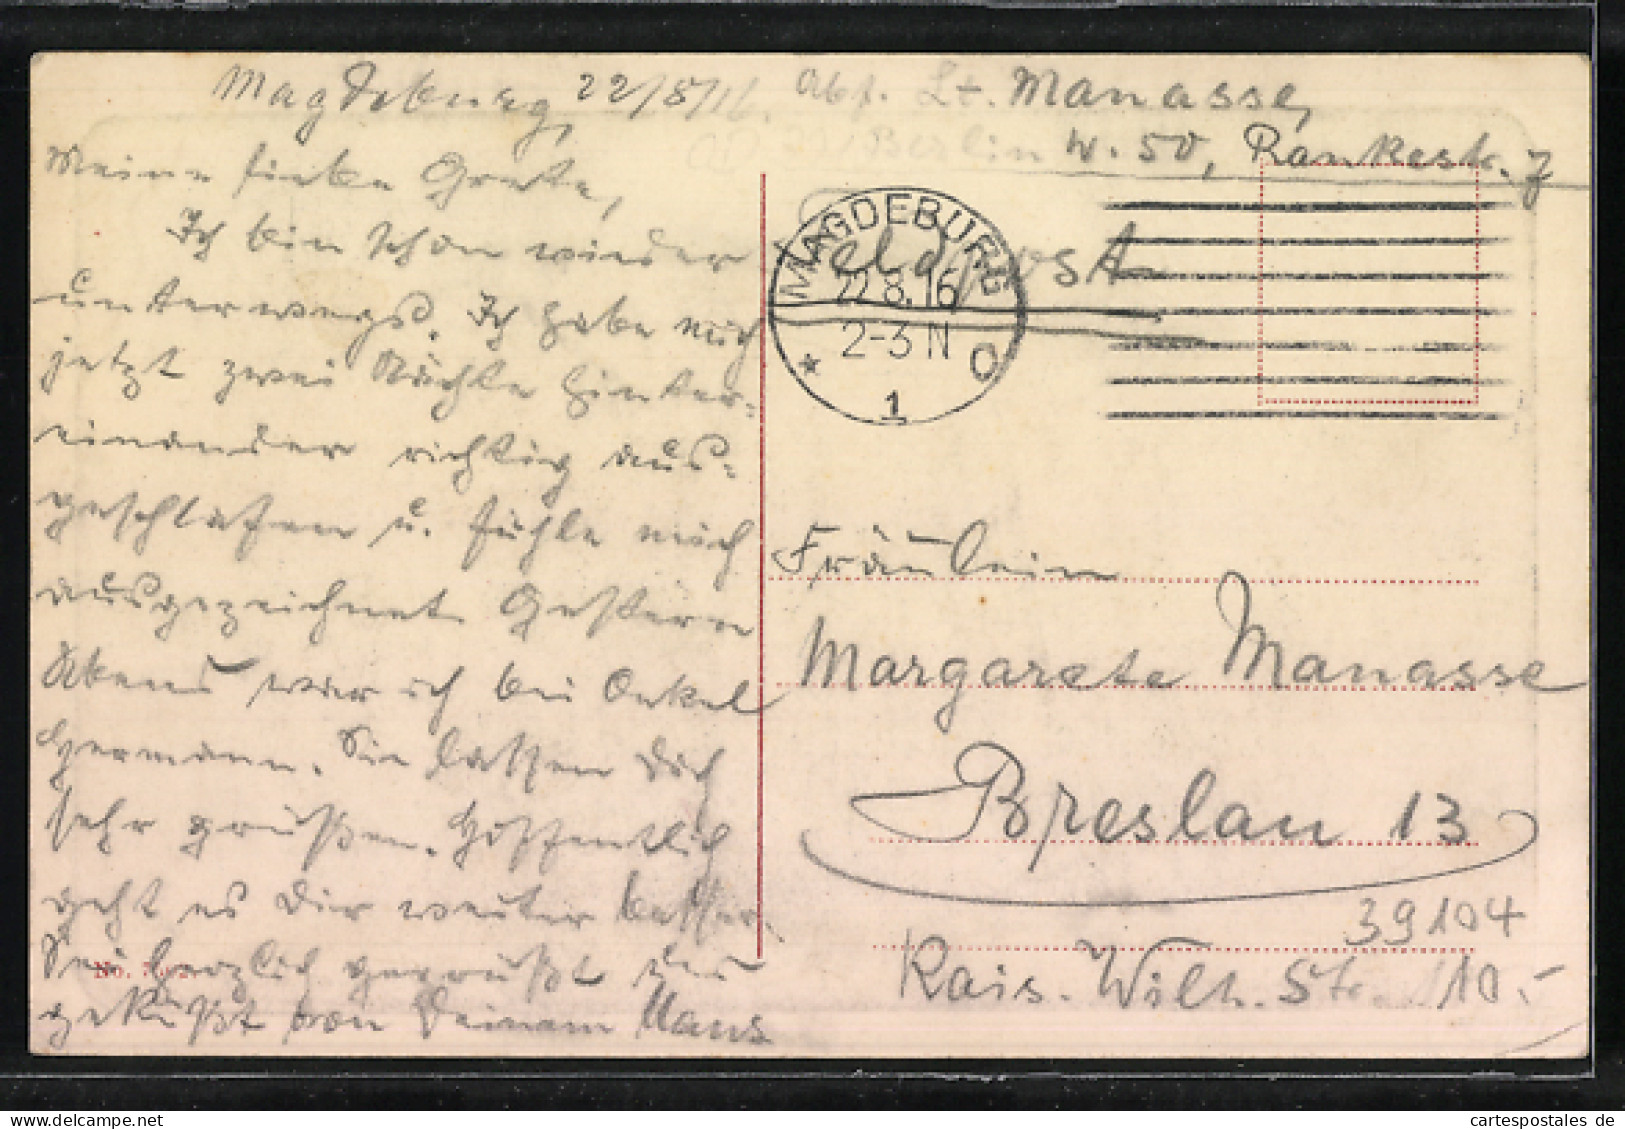 Magdeburg, 22/8/16. Abs. Lt. Manasse,
Berlin W. 50, Rankestr. 7
Meine liebe Grete,
Ich bin schon wieder
unterwegs. Ich habe mich
jetzt zwei Nächte hinter-
einander richtig aus-
geschlafen u. fühle mich
ausgezeichnet. Gestern
Abend war ich bei Onkel
Hermann. Sie lassen Dich
sehr grüßen. Hoffentlich
geht es Dir weiter besser.
Sei herzlich gegrüßt und
geküßt von Deinem Hans
No.
Feldpost
MAGDEBURG
22.8.16
2-3 N
* 1 C
Fräulein
Margarete Manasse
Breslau 13
39104
Kais. Wilh. Str. 110.-
cartespostales de